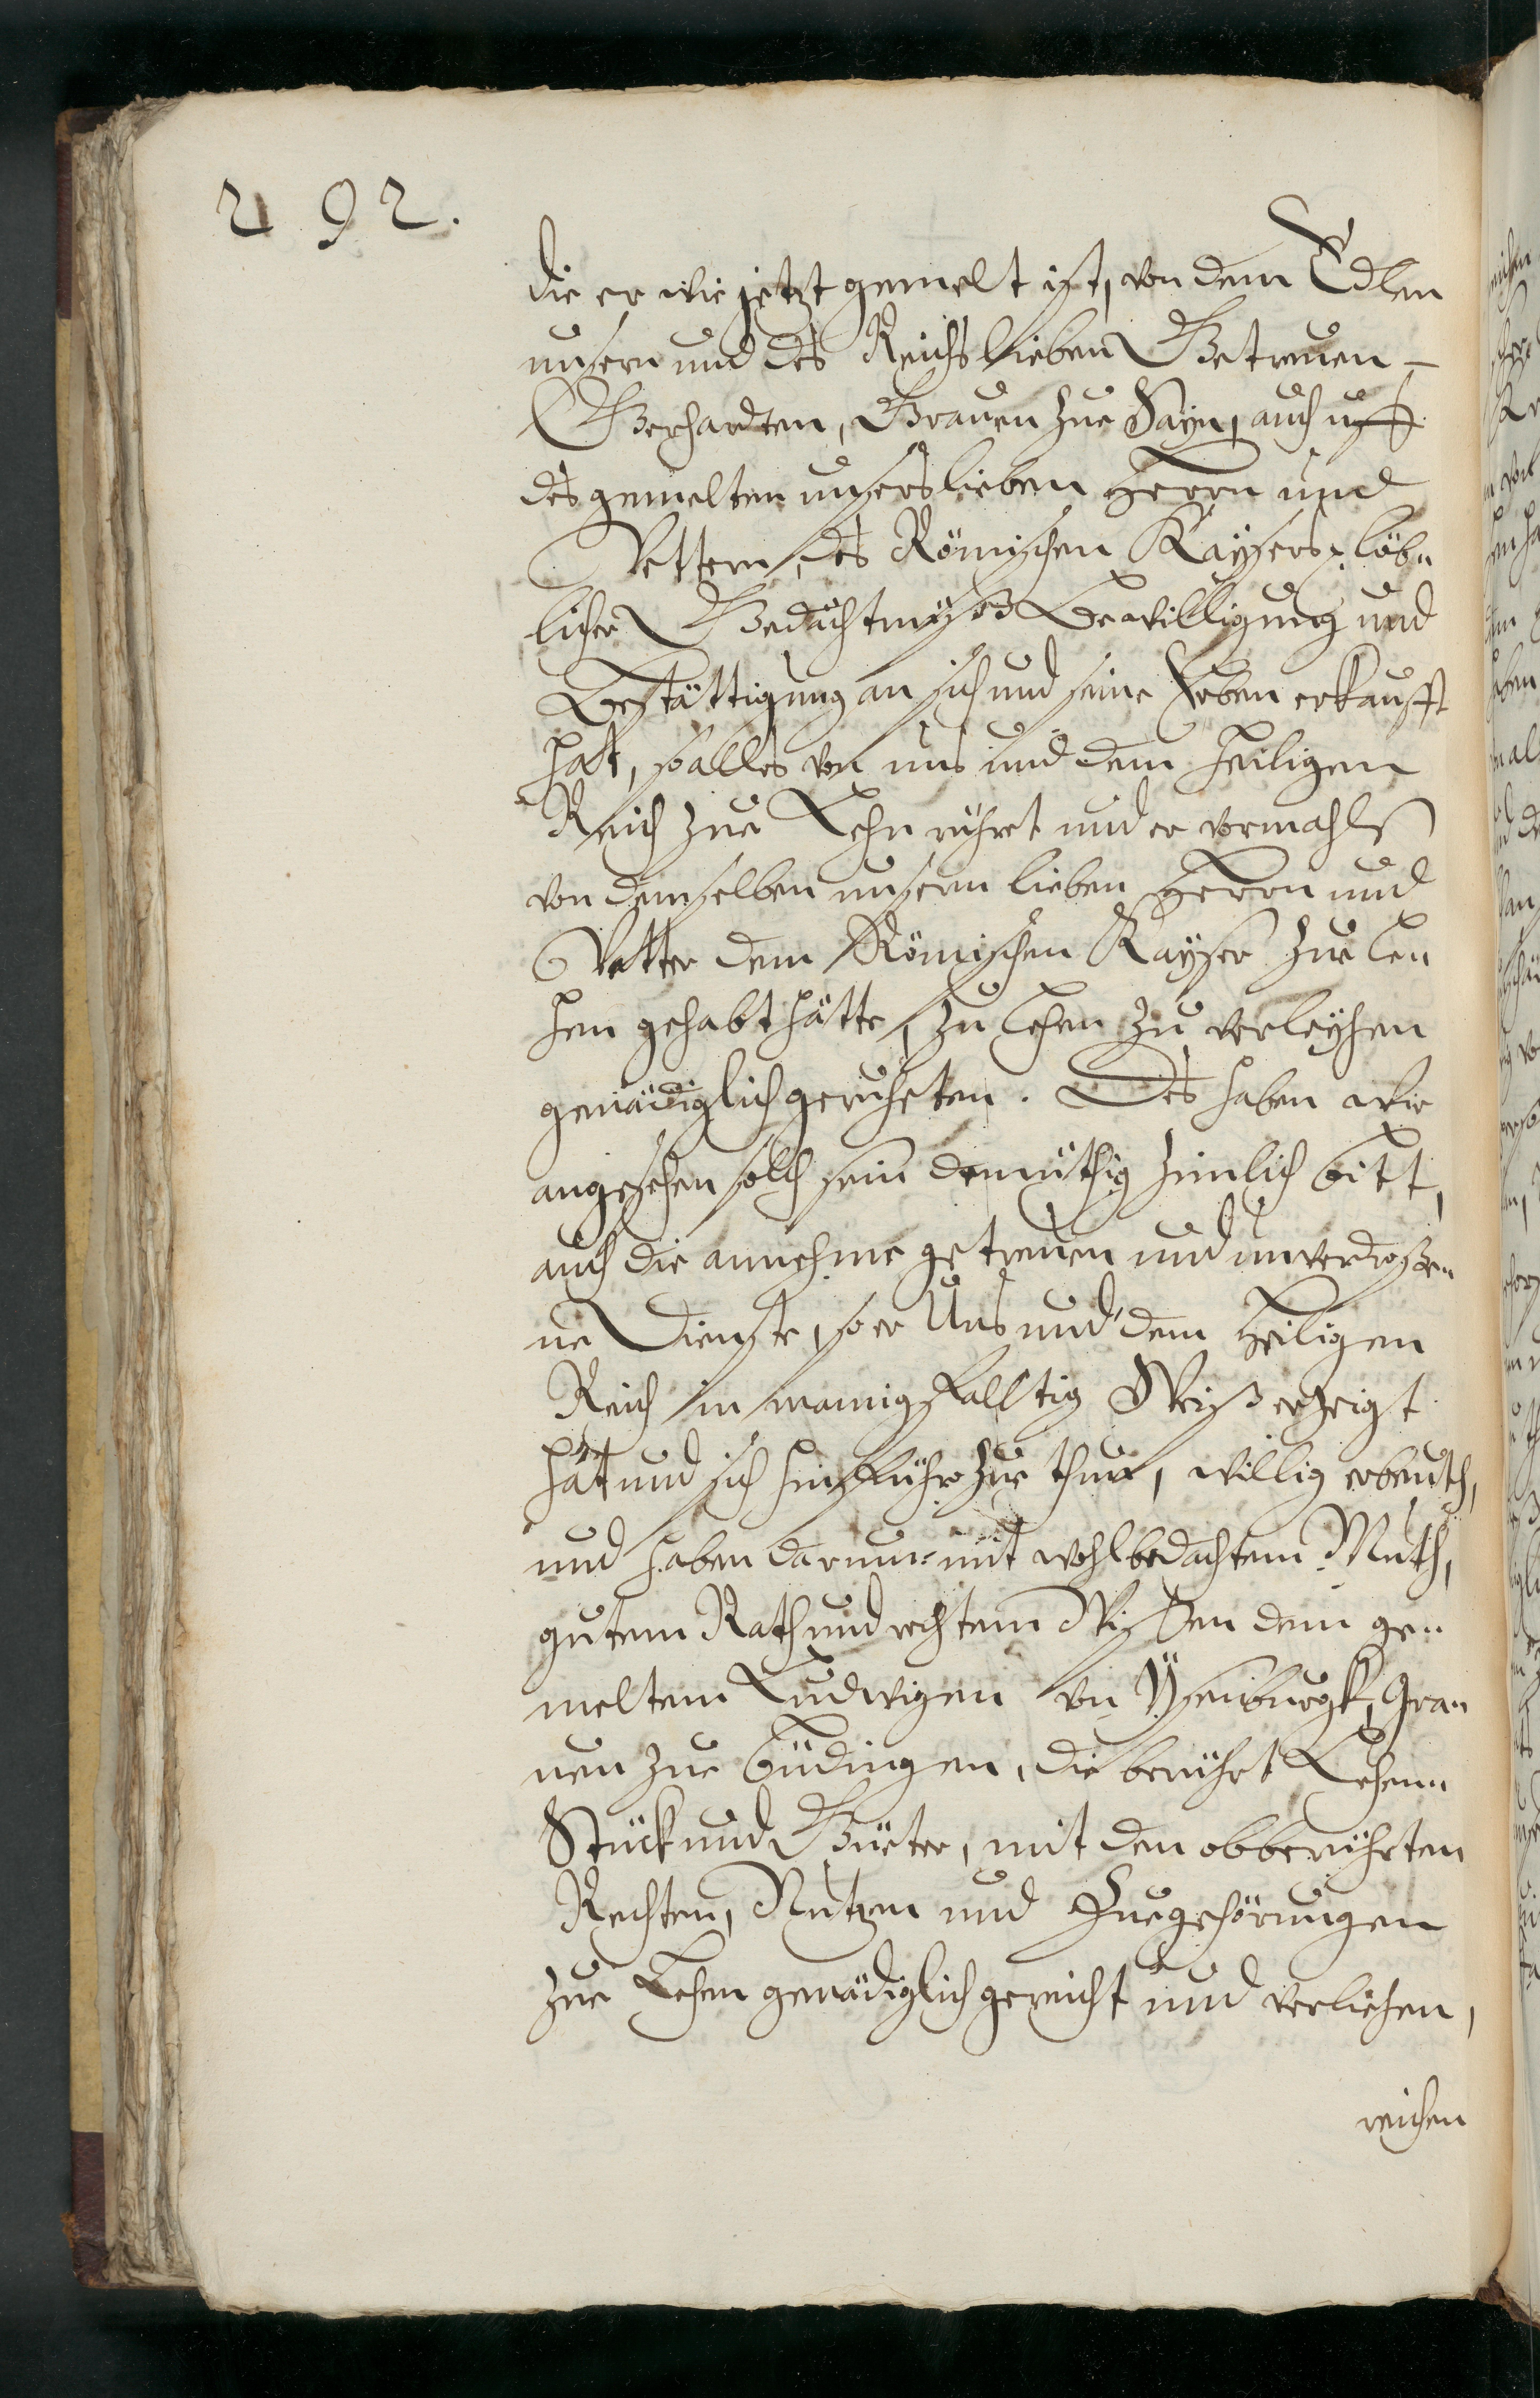 292.
die er wie jetzt gemelt ist, von dem Edlen
unsern und des Reichs lieben Getreuen
Gerhardten, Graven zue Sayn, auch uff
des gemelten unsers lieben Herrn und
Vettern, des Römischen Kaysers, löb„
licher Gedächtnuß Bewilligung und
Bestättigung an sich und seine Erben erkaufft
hat, so alles von uns und dem Heiligen
Reich zue Lehn rührt und er vormahls
von demselben unserm lieben Herrn und
Vetter dem Römischen Kayser zue Le„
hen gehabt hätte, zu Lehen zu verleyhen
genädiglich geruheten. Des haben wir
angesehen solch sein demüthig zimlich bitt,
auch die annehme getreuen und unverdroße„
ne Dienste, so er Uns und dem Heiligen
Reich in mannigfaltig Weiß erzeigt
hat und sich hinführo zue thun, willig erbeuth,
und haben darumb mit wohlbedachtem Muth,
gutem Rath und rechtem Wissen dem ge„
meltem Ludwigen von Ysenburgk, Gra„
uen zue Büdingen, die berührt Lehen„
Stück und Güeter, mit den obberührten
Rechten, Nutzen und Zuegehörungen
zue Lehen genädiglich gereicht und verliehen,
reichen